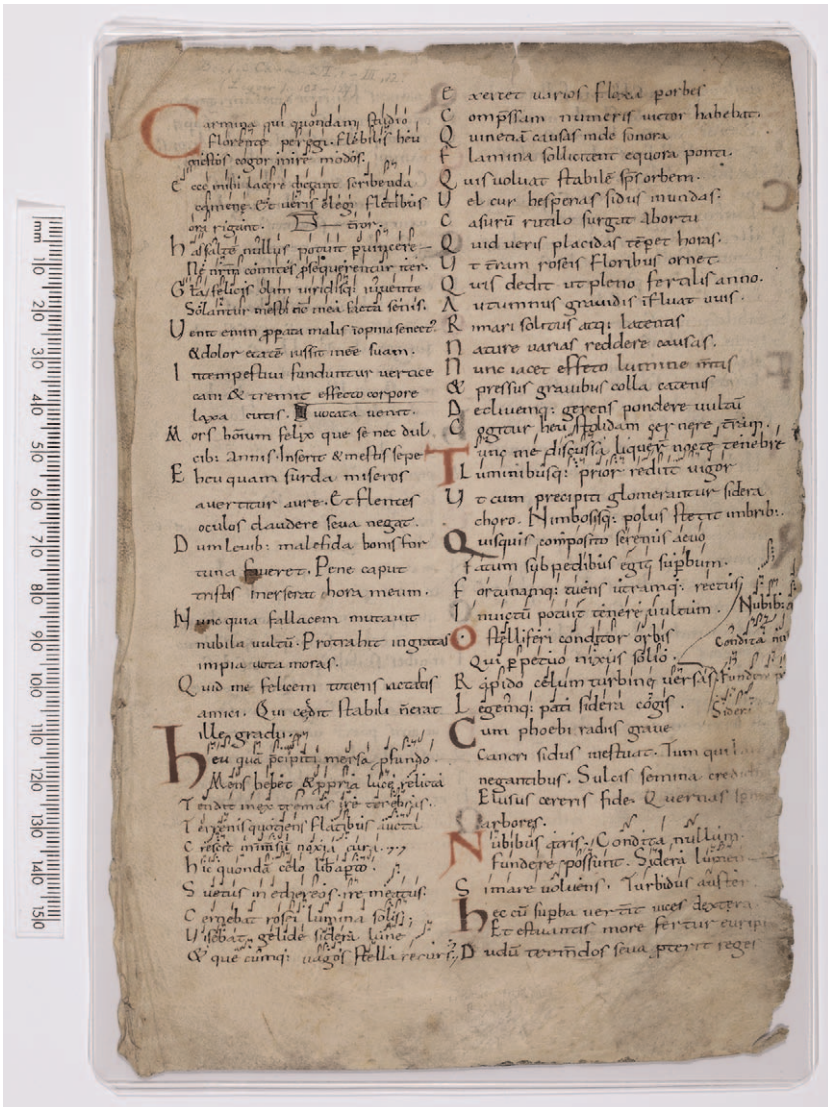 Carmina qui quondam studio
florente peregi. Flebilis heu
mestos cogor inire modos.
Ecce mihi lacere dictant scribenda
camene. Et veris elegi fletibus
ora rigant.
has saltē nullus potuit pvincere
Ne nrm̄ comites psequerentur iter.
Gla felicis olim viridisq; iuvente
Solantur mesti nc̄ mea facta senis.
Venit enim ppata malis inopina senect?
& dolor etatē iussit inēe suam.
Intempestivi funduntur vertice
cani & tremit effecto corpore
laxa cutis.
Mors hominum felix que se nec dul
cib: Annis. Inserit & mestis sepe
Eheu quam surda miseros
avertitur aure. Et flentes
oculos claudere seva negat.
Dum levib: malefida bonis for
tuna faveret. Pene caput
tristis merserat hora meum.
Nunc quia fallacem mutavit
nubila vultū. Protrahit ingratas
impia vota moras.
Quid me felicem totiens iactastis
amici. Qui cecidit stabili n̄ erat
ille gradu.
heu quā pcipiti mersa pfundo.
Mens hebet & ppria luce relicta
Tendit in extremas ire tenebras.
Terrenis quotiens flatibus aucta
Crescit in mensū noxia cura.
hic quondā celo libero apto.
Suetus in ethereos ire meatus.
Cernebat rosei lumina solis;
Visebat gelide sidera lune
& que cumq: vagos stella recurs;
Exercet varios flexa porbes
Compssam numeris victor habebat.
Quinetiā causas unde sonora
Flamina sollicitent equora ponti.
Quis volvat stabilē sps orbem.
Vel cur hesperias sidus in undas.
Casurū rutilo surgat abortu
Quid veris placidas tēpet horas.
Vt terram roseis floribus ornet
Quis dedit ut pleno fertilis anno.
Autumnus gravidis īfluat uvis.
Rimari solitus atq: latentis
Nature varias reddere causas.
Nunc iacet effeto lumine mentis
& pressus gravibus colla catenis
Declivemq: gerens pondere vultū
Cogitur heu stolidam cernere tram.
Tunc me discussa liquer̄ nocte tenebre
Luminibusq: prior rediit vigor
Vt cum precipiti glomerantur sidera
choro. Nimbosisq: polus stetit imbrib:.
Quisquis composito serenus aevo
Fatum sub pedibus egit supbum.
Fortunamq: tuens utramq: rectus
Invictū potuit tenere vultum.
Nubib:
O stelliferi conditor orbis
Condita
Qui ppetuo nixus solio.
Rapido celum turbine versas
Fundere
Legemq: pati sidera cogis.
Sidera
Cum phoebi radiis grave
Cancri sidus inestuat. Tum qui
negantibus. Sulcis semina
Elusus cereris fide. Quernas
arbores.
Nubibus atris. Condita nullum.
fundere possunt. Sidera lumen
Si mare volvens. Turbidus auster
hec cū supba vertit vices dextera
Et estuantis more fertur euripi
Dudū tremendos seva pterit reges